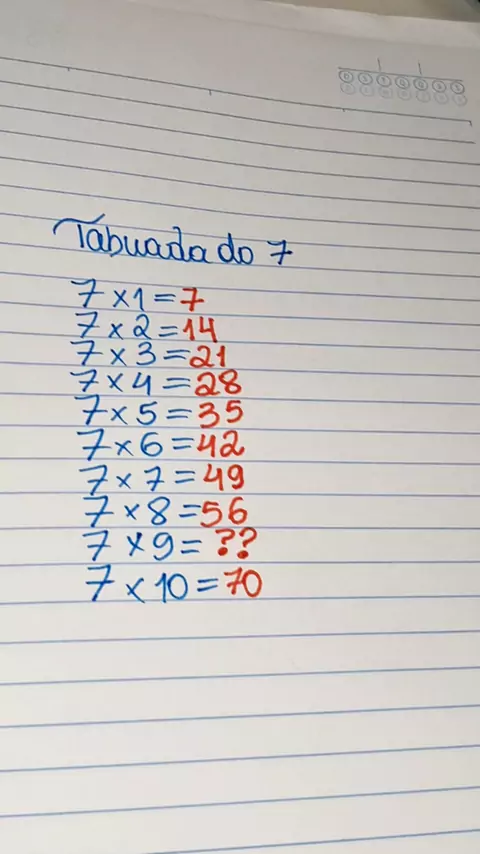 Tabuada do 7
7 x 1 = 7
7 x 2 = 14
7 x 3 = 21
7 x 4 = 28
7 x 5 = 35
7 x 6 = 42
7 x 7 = 49
7 x 8 = 56
7 x 9 = ??
7 x 10 = 70